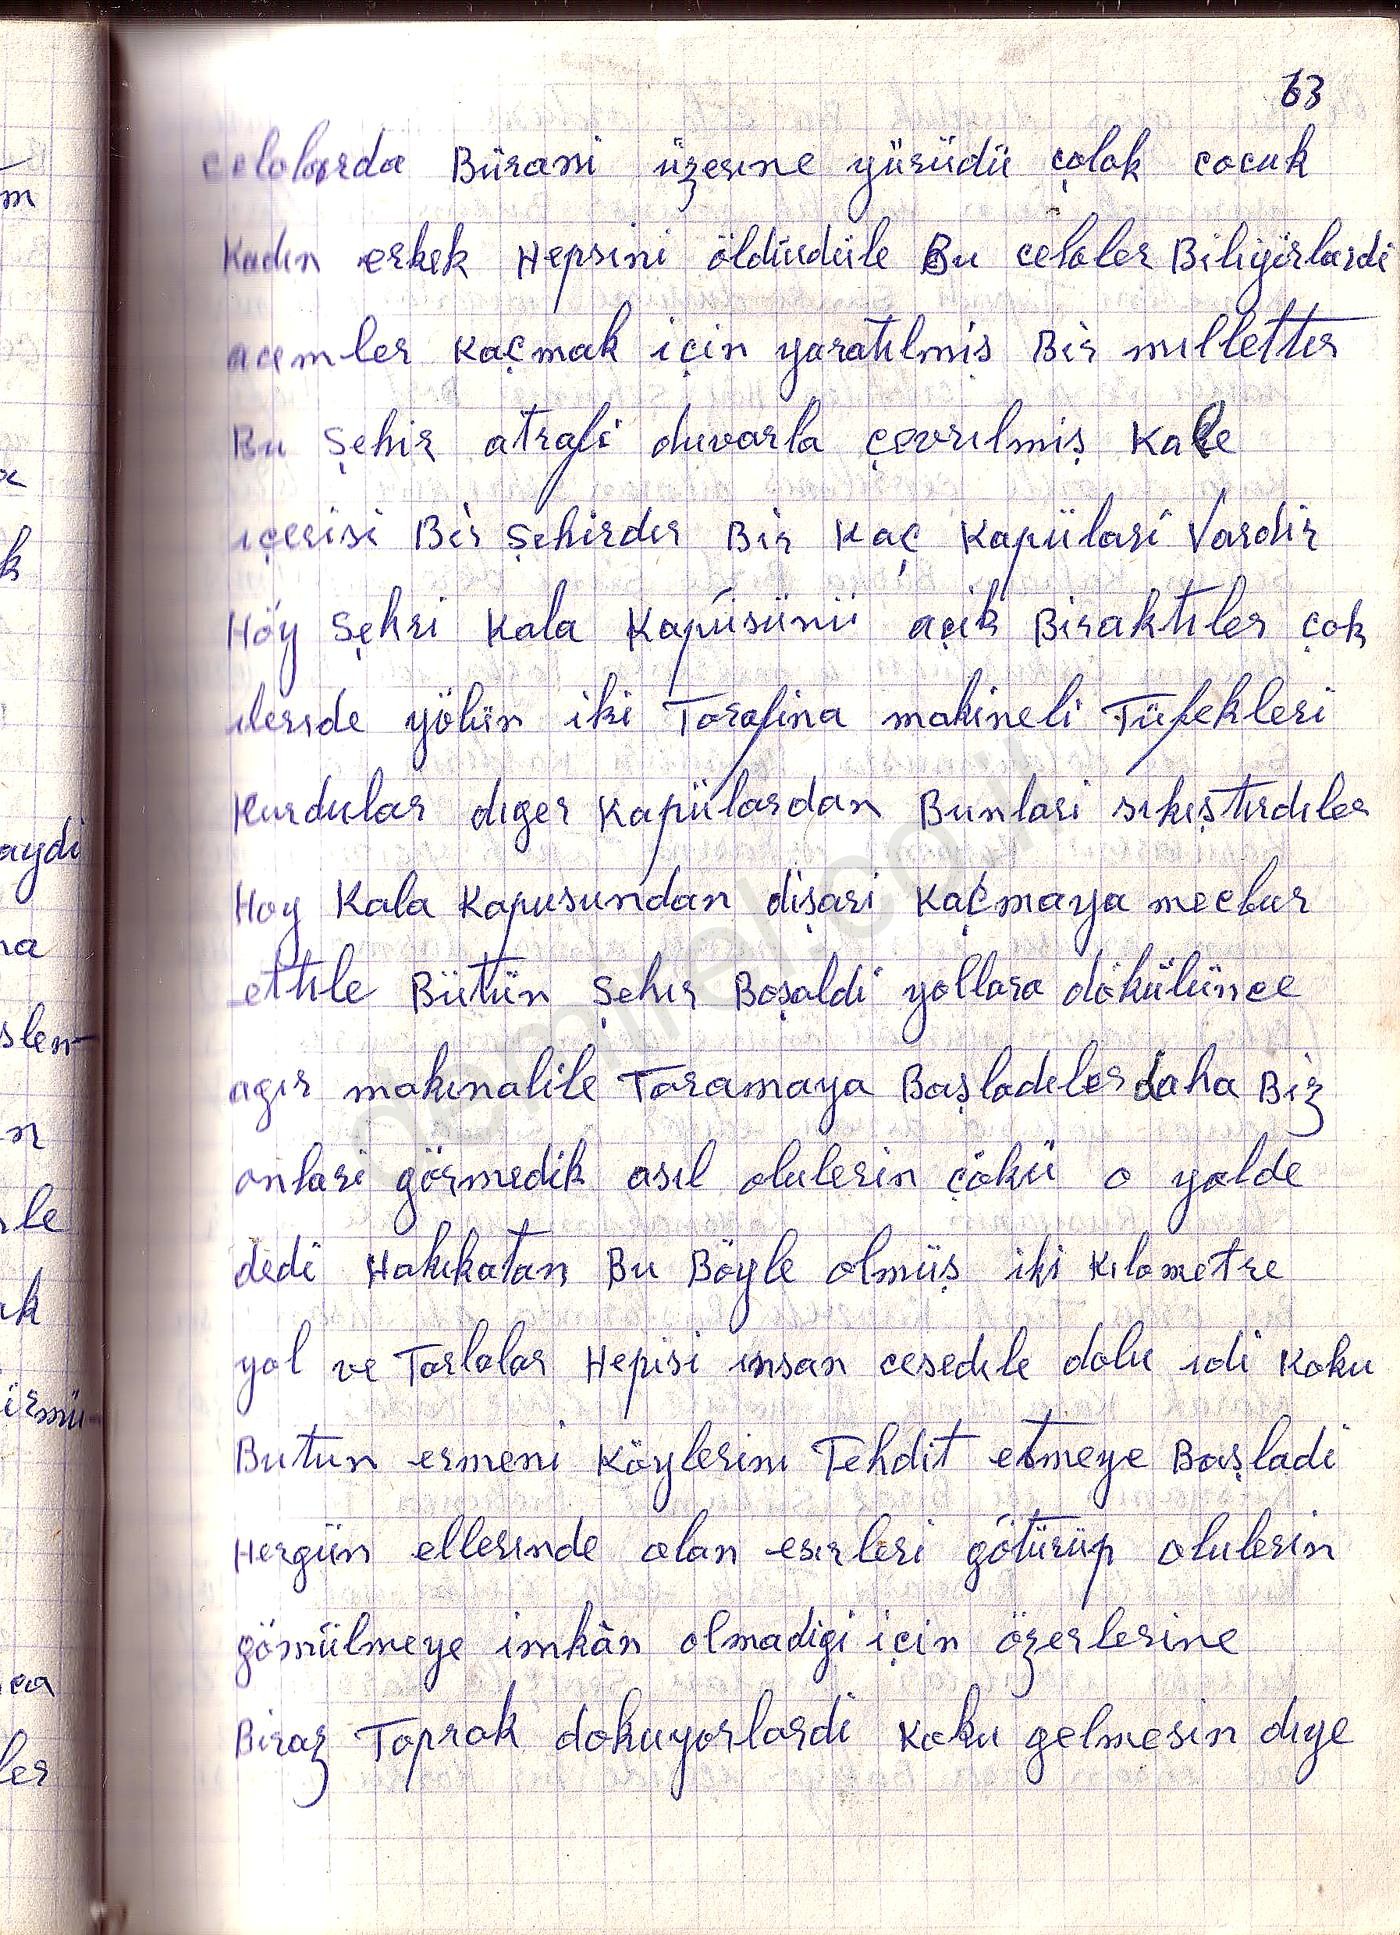 63
celolarda Bürasi üzerıne yürüdü çolok cocuk
Kadın erkek Hepsini öldürdüle Bu celoler Biliyörlardi
acemler kaçmak için yaratılmiş Bir mıllettır
Bu Şehir atrafi duvarla çevrılmiş Kale
ıçerisi Bir Şehirdır Bir kaç kapülari Vardir
Höy Şehri kala kapüsünü açik Biraktıler çok
ılerıde yölün iki Tarafina makineli Tüfekleri
Kurdular dıger kapülardan Bunlari sıkıştırdıler
Hoy Kala kapusundan dişari kaçmaya mecbur
ettıle Bütün Şehır Boşaldi yollara dökülünce
agır makınalile Taramaya Başladeler daha Biz
onlari görmedik asıl olulerin çökü o yolde
dedi Hakıkatan Bu Böyle olmüş iki kılometre
yol ve Tarlalar Hepisi ınsan cesedıle dolu ıdi koku
Butun ermeni köylerinı Tehdit etmeye Başladi
Hergün ellerınde olan esırleri götürüp olulerin
gömülmeye imkân olmadigi için özerlerine
Biraz Toprak dokuyorlardi koku gelmesin dıye
demirel.co.il
m
k
aydi
na
slen
n
le
ak
irmü-
ca
ler